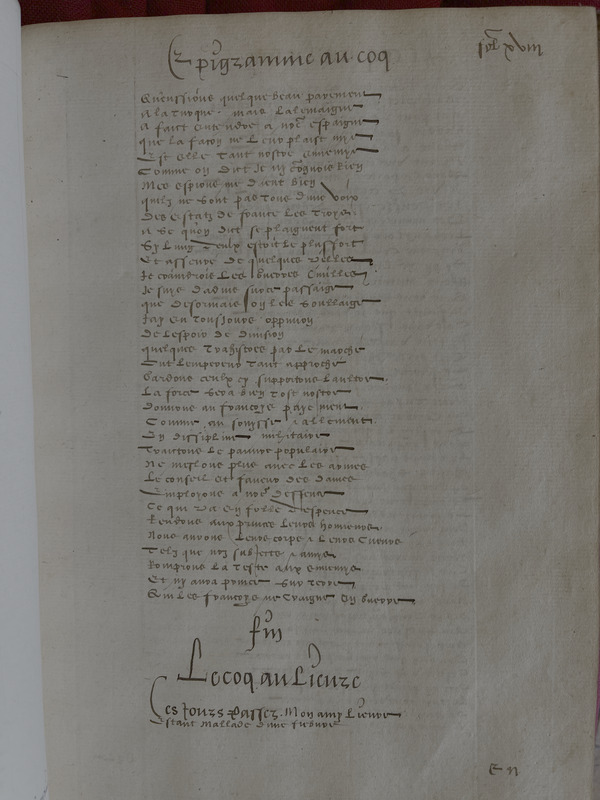 Epigramme au coq
fol xviii
quelque beau parement
A la turque . mais Lalemaigne
A faict entendre a nre espaigne
que la facon ne leur plaist mye
Est elle tant nostre ennemye
Comme on dict Je ny congnois Rien
Mes espions me dient bien
quilz ne sont pas tous dune voix
Des estatz de france Les troys
A ce quon dict se plaignent fort
Sy lung deulx estoit le plus fort
Et asseure de quelques villes
Je craindrois Les guerres civilles
Je suis dadvis
que desormais on les soullaige
Jay eu tousjours oppinion
De Lespoir de
quelques par Le marche
Lempereur tant approche
Gardons ceulx cy supportons Laultre
La force sera bien tost nostre
Donnons au francoys payement
Comme au souysse & allement
En discipline militaire
Traictons Le pauvre populaire
Ne meslons plus avec Les armes
Le conseil et faveur des dames
Employons a nre deffence
Ce qui va en folle despence
Rendons aux princes Leurs honneurs
Nous aurons Leurs corps & Leurs cueurs
Telz que noz subjectz & amys
Romprons La teste aux ennemys
Et ny aura prince sur terre
Qui Les francoys ne craigne en guerre
fin
Le coq au Lieure
Ces Jours passez . Mon amy Lieure
Estant mallade dune fiebure